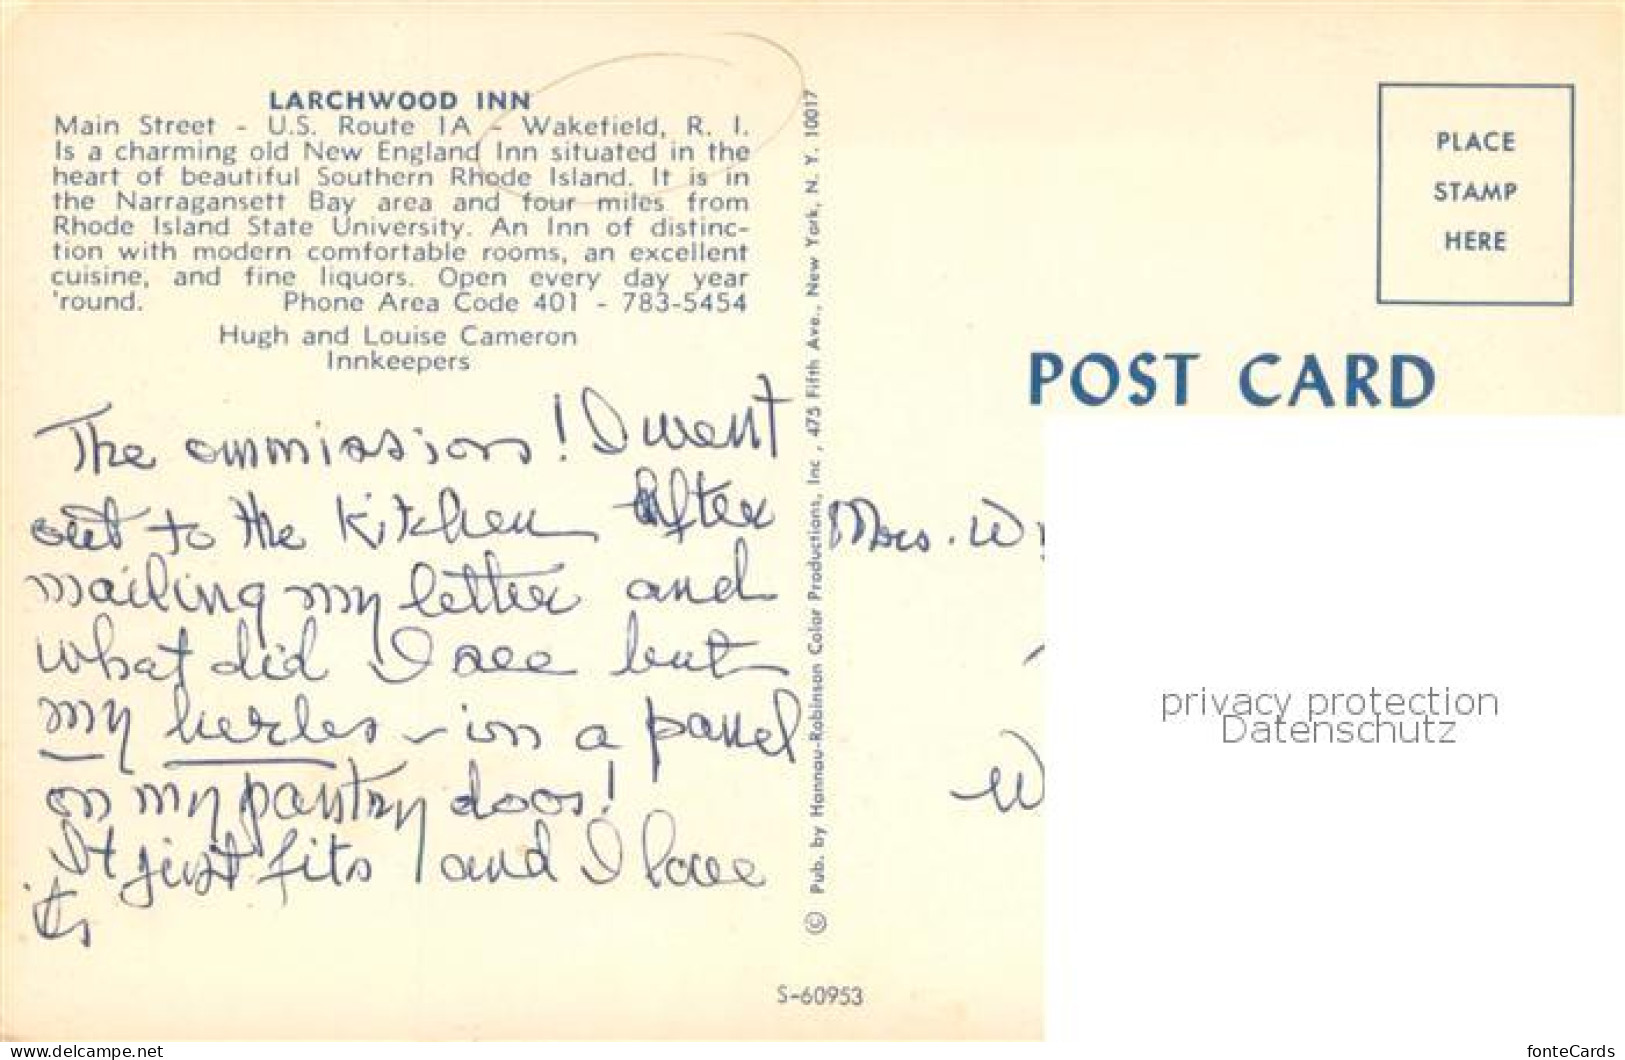 LARCHWOOD INN
Main Street - U.S. Route 1A - Wakefield, R. I.
Is a charming old New England Inn situated in the
heart of beautiful Southern Rhode Island. It is in
the Narragansett Bay area and four miles from
Rhode Island State University. An Inn of distinc-
tion with modern comfortable rooms, an excellent
cuisine, and fine liquors. Open every day year
'round. Phone Area Code 401 - 783-5454
Hugh and Louise Cameron
Innkeepers
The ommissions! I went
out to the kitchen after
mailing my letter and
what did I see but
my herbs - in a panel
on my pantry door!
It just fits and I love
it
© Pub. by Hannau-Robinson Color Productions, Inc., 475 Fifth Ave., New York, N. Y. 10017
S-60953
PLACE
STAMP
HERE
POST CARD
Mrs. W
W
privacy protection
Datenschutz
www.delcampe.net
fonteCards